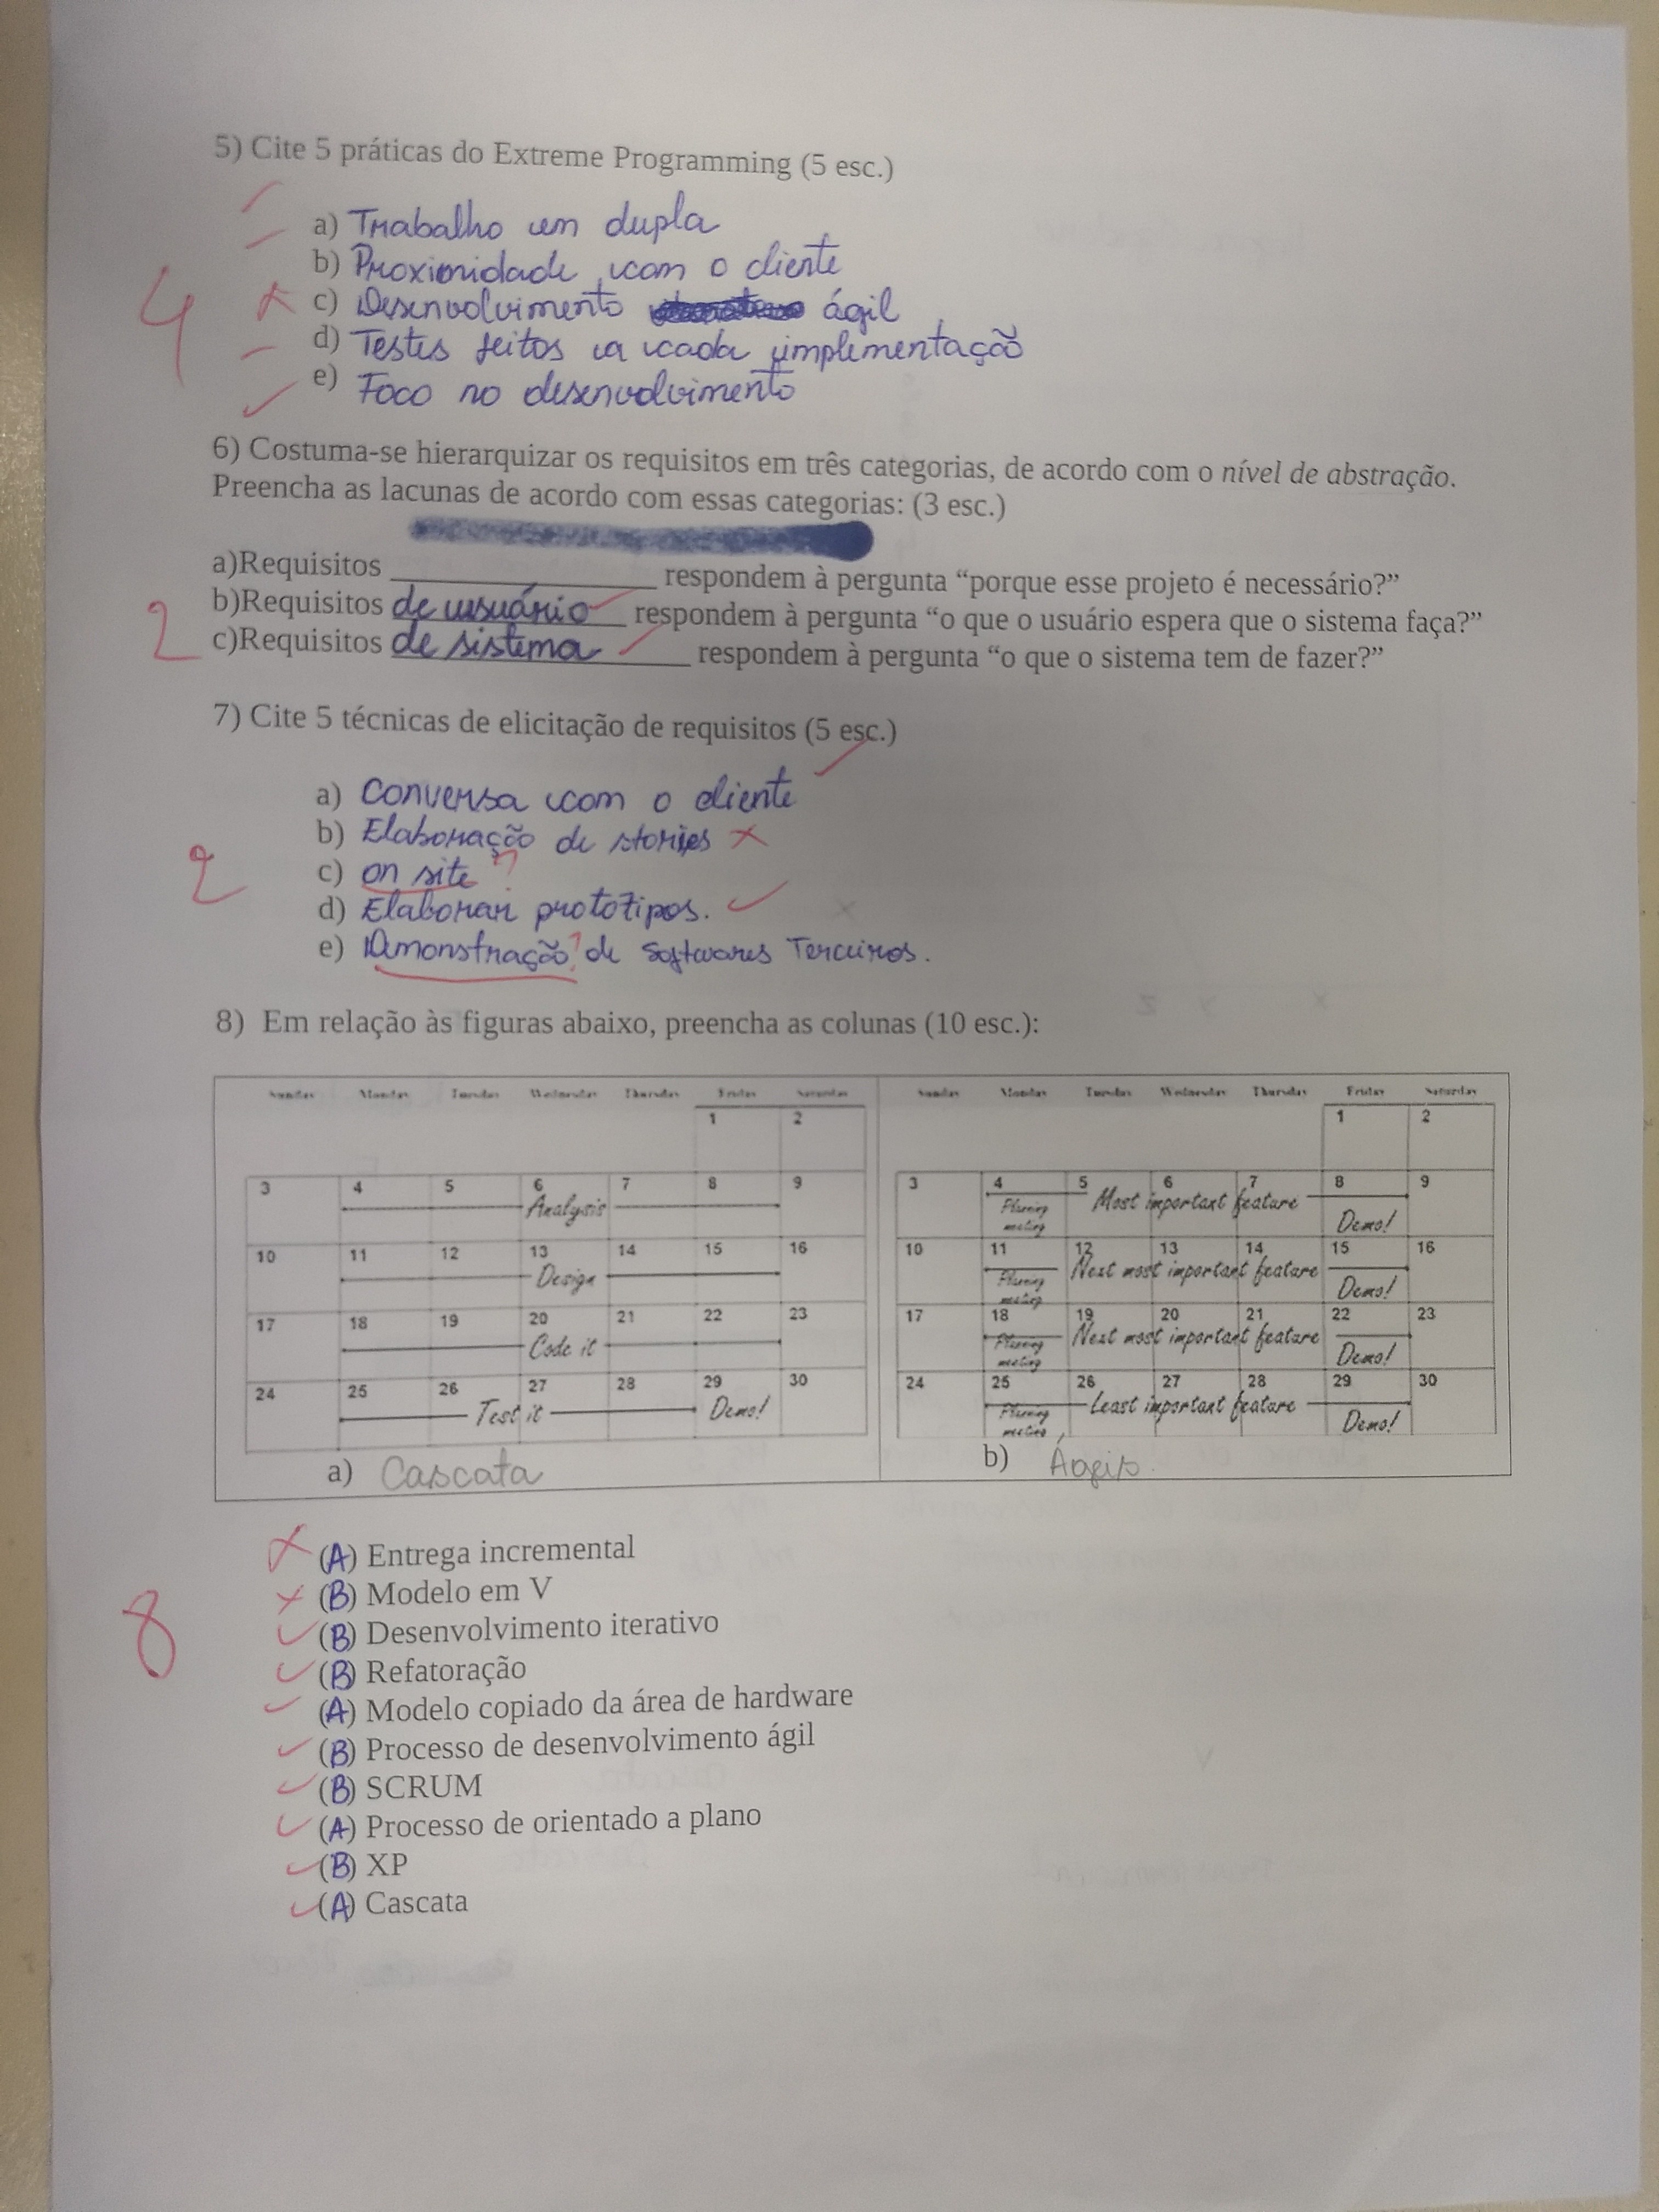 5) Cite 5 práticas do Extreme Programming (5 esc.)
a) Trabalho em dupla
b) Proximidade com o cliente
4
c) Desenvolvimento ágil
d) Testes feitos a cada implementação
e) Foco no desenvolvimento
6) Costuma-se hierarquizar os requisitos em três categorias, de acordo com o nível de abstração.
Preencha as lacunas de acordo com essas categorias: (3 esc.)
a)Requisitos ________________ respondem à pergunta “porque esse projeto é necessário?”
b)Requisitos de usuário respondem à pergunta “o que o usuário espera que o sistema faça?”
2
c)Requisitos de sistema respondem à pergunta “o que o sistema tem de fazer?”
7) Cite 5 técnicas de elicitação de requisitos (5 esc.)
a) Conversa com o cliente
b) Elaboração de stories
2
c) on site ?
d) Elaborar protótipos.
e) Demonstração ? de Softwares Terceiros.
8) Em relação às figuras abaixo, preencha as colunas (10 esc.):
Sunday Monday Tuesday Wednesday Thursday Friday Saturday
1 2
3 4 5 6 7 8 9
Analysis
10 11 12 13 14 15 16
Design
17 18 19 20 21 22 23
Code it
24 25 26 27 28 29 30
Test it Demo!
a) Cascata
Sunday Monday Tuesday Wednesday Thursday Friday Saturday
1 2
3 4 5 6 7 8 9
Planning meeting Most important feature Demo!
10 11 12 13 14 15 16
Planning meeting Next most important feature Demo!
17 18 19 20 21 22 23
Planning meeting Next most important feature Demo!
24 25 26 27 28 29 30
Planning meeting Least important feature Demo!
b) Ágeis.
(A) Entrega incremental
(B) Modelo em V
8
(B) Desenvolvimento iterativo
(B) Refatoração
(A) Modelo copiado da área de hardware
(B) Processo de desenvolvimento ágil
(B) SCRUM
(A) Processo de orientado a plano
(B) XP
(A) Cascata